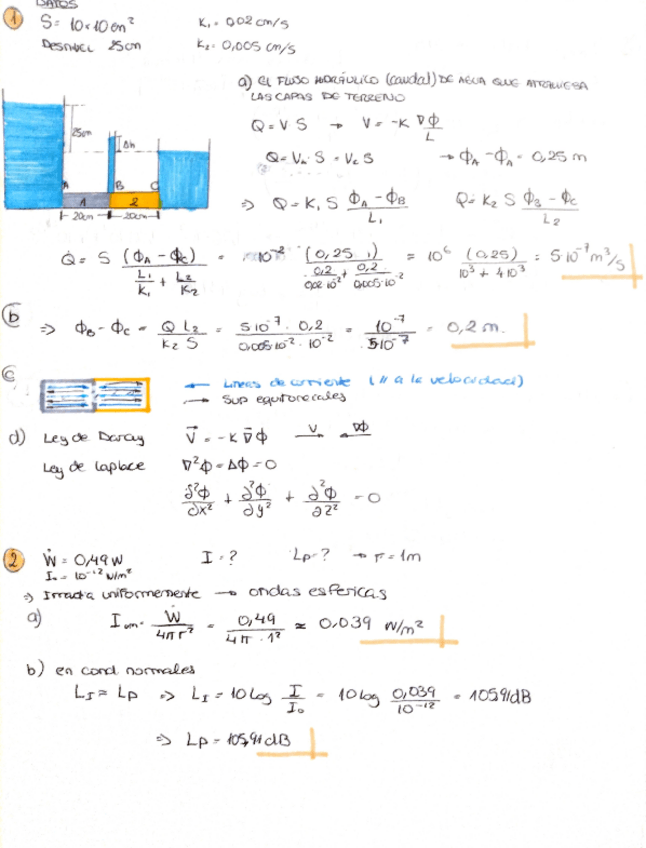 DATOS
① S = 10×10 cm² K₁ = 0,02 cm/s
DESNIVEL 25cm K₂ = 0,005 cm/s
a) EL FLUJO HIDRÁULICO (caudal) DE AGUA QUE ATRAVIESA
LAS CAPAS DE TERRENO
Q = V S → V = -K ∇Φ/L
Q = Vₐ · S = V_c S → Φ_A - Φ_A = 0,25 m
⇒ Q = K₁ S (Φ_A - Φ_B)/L₁ Q = K₂ S (Φ_B - Φ_C)/L₂
25cm
Δh
A B C
1 2
20cm 20cm
Q = S (Φ_A - Φ_C)/(L₁/K₁ + L₂/K₂) = 10⁻² (0,25 . 1)/(0,2/0,02·10⁻² + 0,2/0,005·10⁻²) = 10⁻² (0,25)/(10³ + 4 10³) = 5 10⁻⁷ m³/s
ⓑ ⇒ Φ_B - Φ_C = Q L₂/K₂ S = 5 10⁻⁷ · 0,2/0,005·10⁻² · 10⁻² = 10⁻⁷/5 10⁻⁷ = 0,2 m.
ⓒ ← Lineas de corriente (// a la velocidad)
→ Sup equitorecales
d) Ley de Darcy V⃗ = -K ∇⃗Φ V ∇Φ
Ley de Laplace ∇²Φ = ΔΦ = 0
∂²Φ/∂x² + ∂²Φ/∂y² + ∂²Φ/∂z² = 0
② Ẇ = 0,49 W I = ? Lp = ? → r = 1m
I₀ = 10⁻¹² W/m²
⇒ Irradia uniformemente → ondas esfericas
a) I₁ₘ = Ẇ/4πr² = 0,49/4π · 1² ≈ 0.039 W/m²
b) en cond normales
L_I = Lp ⇒ L_I = 10 Log I/I₀ = 10 log 0,039/10⁻¹² = 105,91dB
⇒ Lp = 105,91 dB